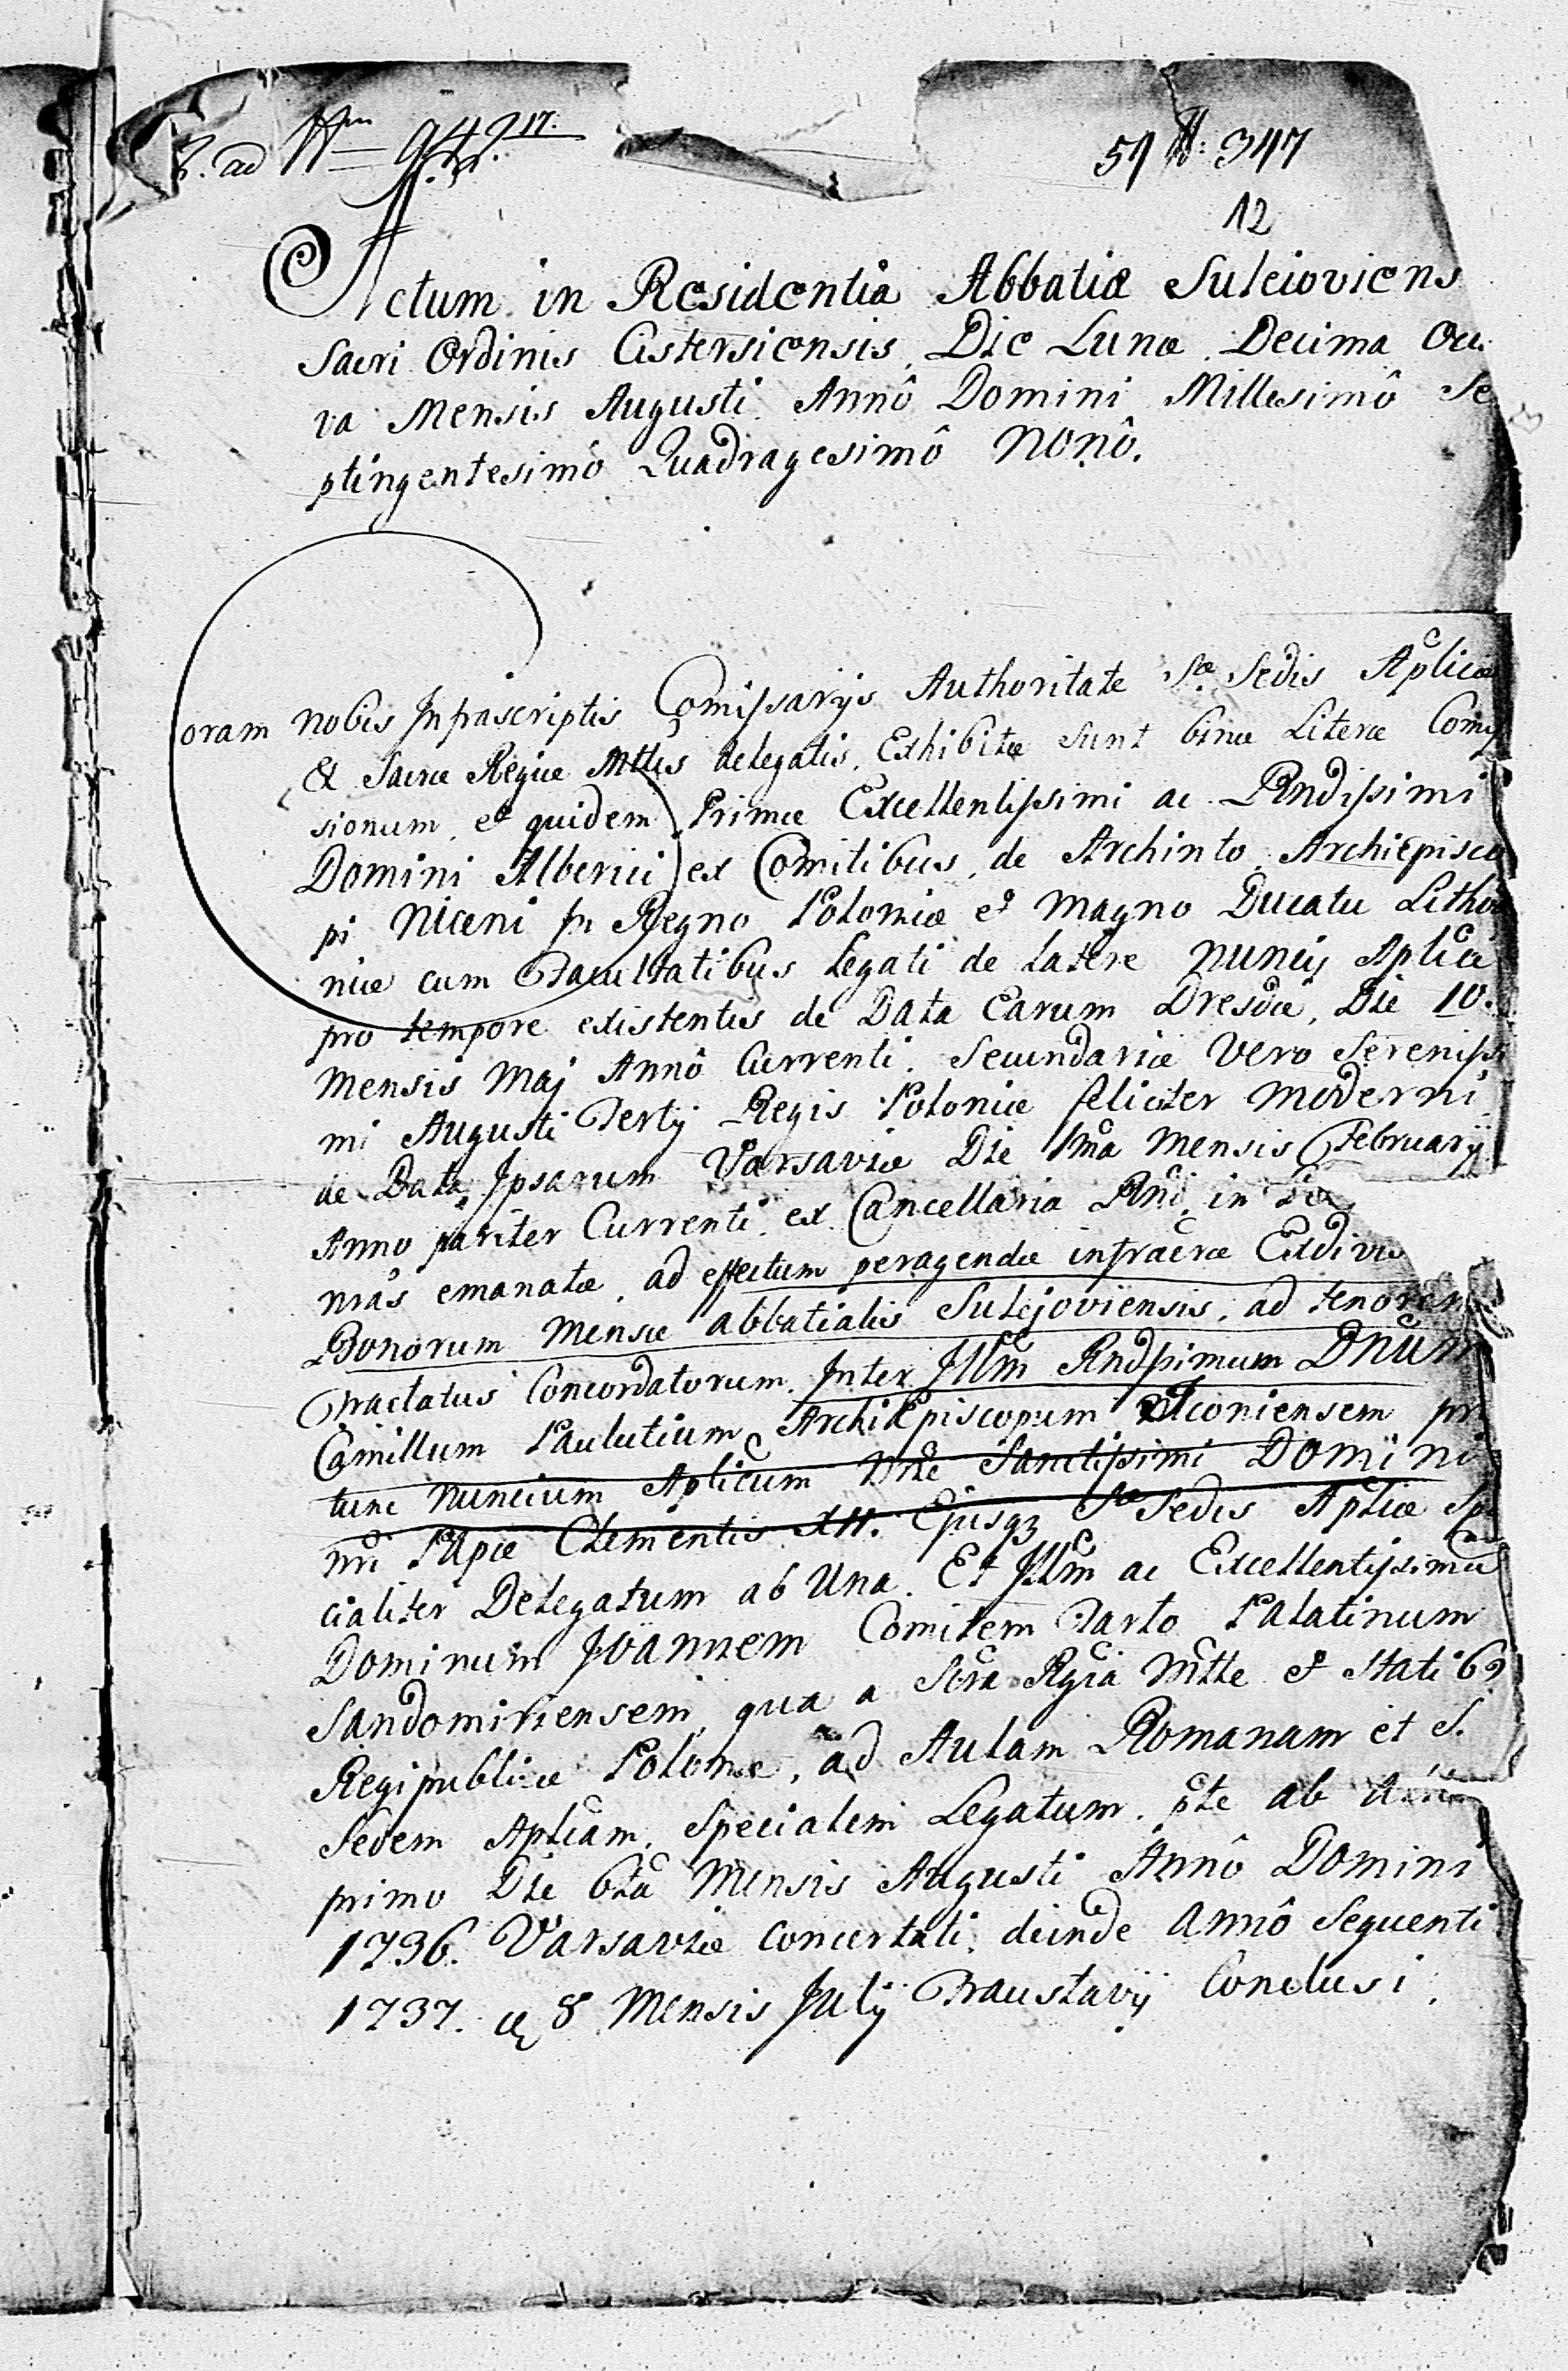 ad Nrm 949. 17.
59 N: 347
12
Actum in Residentia Abbatiæ Suleioviens
Sacri Ordinis Cistersiensis, Die Lunæ Decima Octa
va Mensis Augusti Annô Domini Millesimô Se
ptingentesimô Quadragesimô Nonô.
Coram Nobis Infrascriptis Comissarijs Authoritate Sæ Sedis Aplicæ
& Sacræ Regiæ Mttis delegatis, Exhibitæ sunt binæ Literæ Comis
sionum, et quidem Primæ Excellentissimi ac Rndissimi
Domini Alberici ex Comitibus de Archinto Archiepisco
pi Niceni in Regno Poloniæ et Magno Ducatu Lithva
niæ cum Facultatibus Legati de Latere Nuncij Aplici
pro tempore existentis de Data Earum Dresdæ, Die 10.
Mensis Maj Annô Currenti. Secundariæ Vero Serenissi
mi Augusti Tertij Regis Poloniæ feliciter Moderni
de Data Ipsarum Varsaviæ Die 1ma Mensis February
Anno pariter Currenti ex Cancellaria Rni in
nias emanatæ, ad effectum peragendæ infractæ Exdivis
Bonorum Mensæ abbatialis Sulejoviensis, ad tenorem
Tractatus Concordatorum Inter Illm Rndssimum Dnum
Camillum Paulutium ArchiEpiscopum Iconiensem pro
tunc Nuncium Aplicum Ntre Sanctissimi Domini
nri Papæ Clementis XII. Ejusqz Sæ Sedis Aplicæ Spe
cialiter Delegatum ab Una. Et Illm ac Excellentissimum
Dominum Joannem Comitem Tarlo Palatinum
Sandomiriensem, qua a Scra Rgia Mtte et Statibq
Regipublicæ Polonæ, ad Aulam Romanam et S.
Sedem Aplicam, Specialem Legatum, pte ab
primo Die 6ta Mensis Augusti Annô Domini
1736. Varsaviæ concertati, deinde Annô Sequenti
1737. 8 Mensis Julij Fraustavij Conclusi.